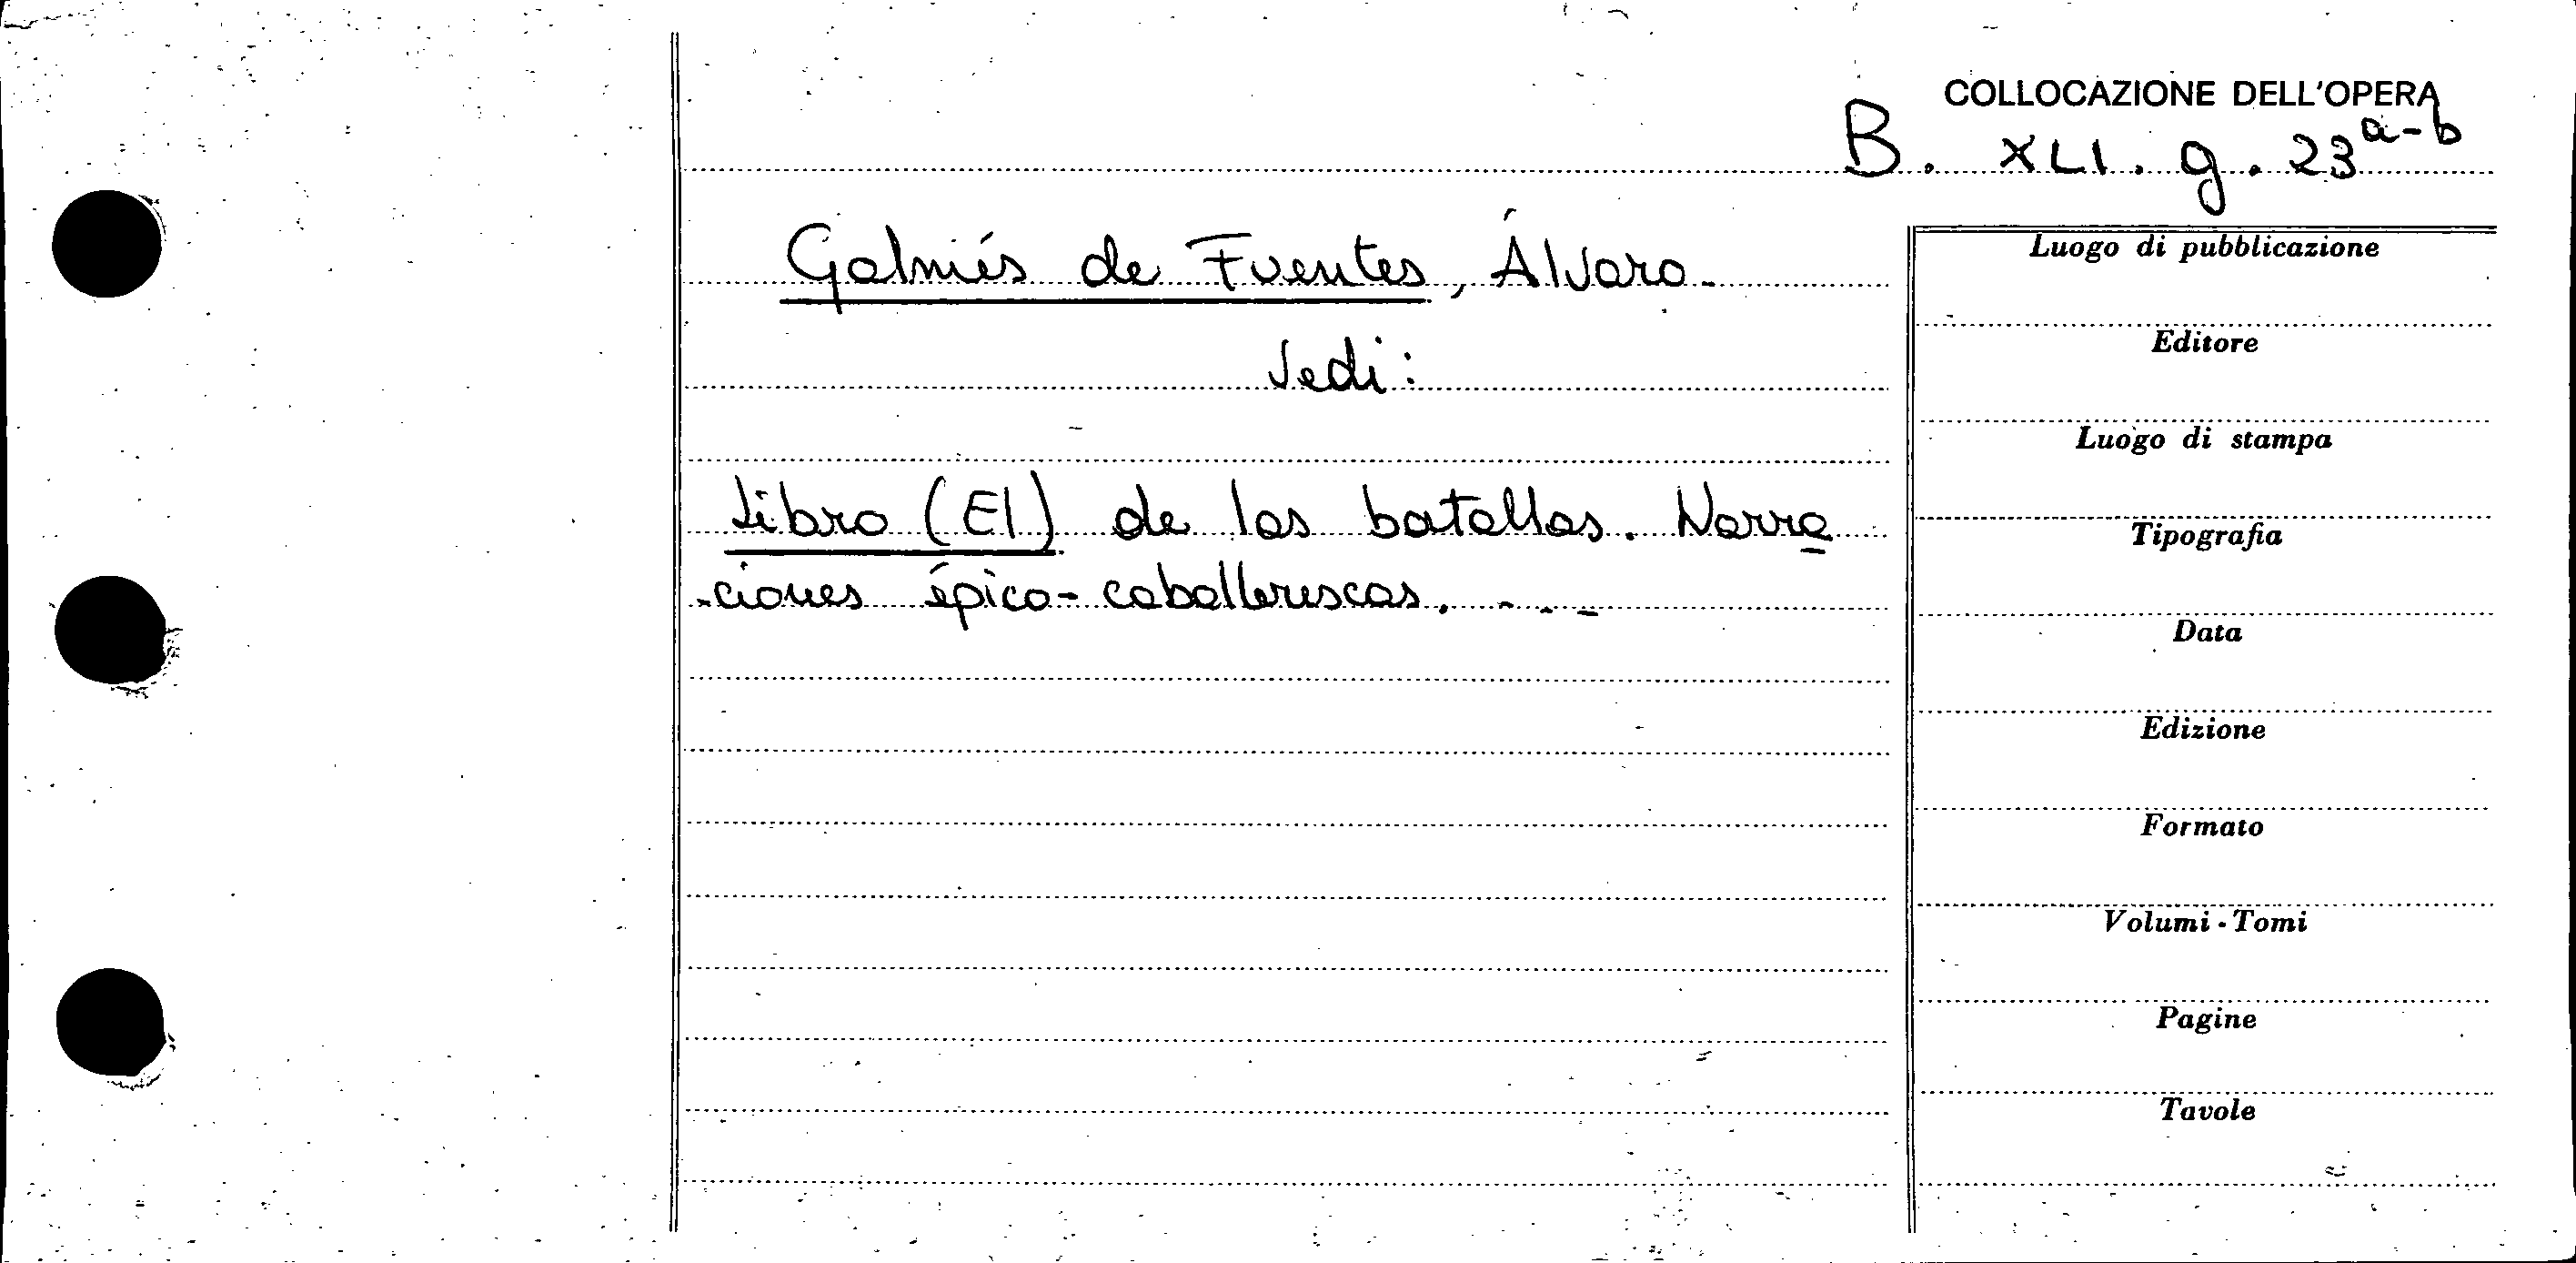 COLLOCAZIONE DELL'OPERA
B. XLI. g. 23 a-b
Galmés de Fuentes, Álvaro-
Vedi:
Libro (El) de las batallas. Narra
-ciones épico-caballerescas. - - -
Luogo di pubblicazione
Editore
Luogo di stampa
Tipografia
Data
Edizione
Formato
Volumi - Tomi
Pagine
Tavole